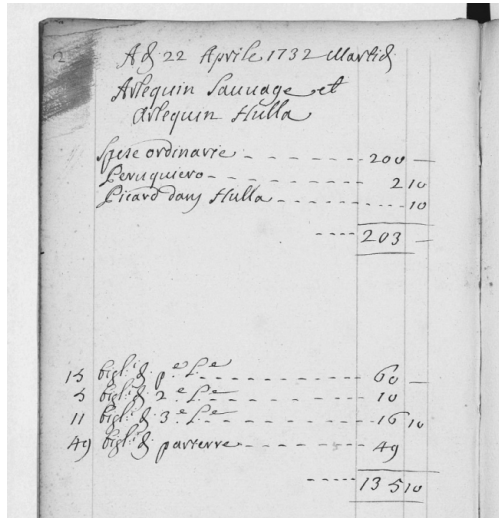 2
Ad 22 Aprile 1732 Martidi
Arlequin Sauuage et
Arlequin Hulla
Spese ordinarie - - - - - - - - 200 —
Peruquiero - - - - - - - - 2 10
Picard dans Hulla - - - - - - - - 10
- - - - 203 —
15 bigl.i di p.e L.e - - - - - - - - 60 —
5 bigl.i di 2.e L.e - - - - - - - - 10
11 bigl.i di 3.e L.e - - - - - - - - 16 10
49 bigl.i di parterre - - - - - - - - 49
- - - - - 135 10